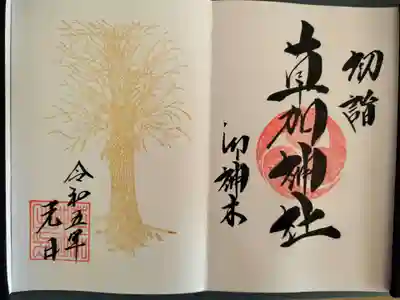 初詣
草加神社
御神木
令和五年
元日